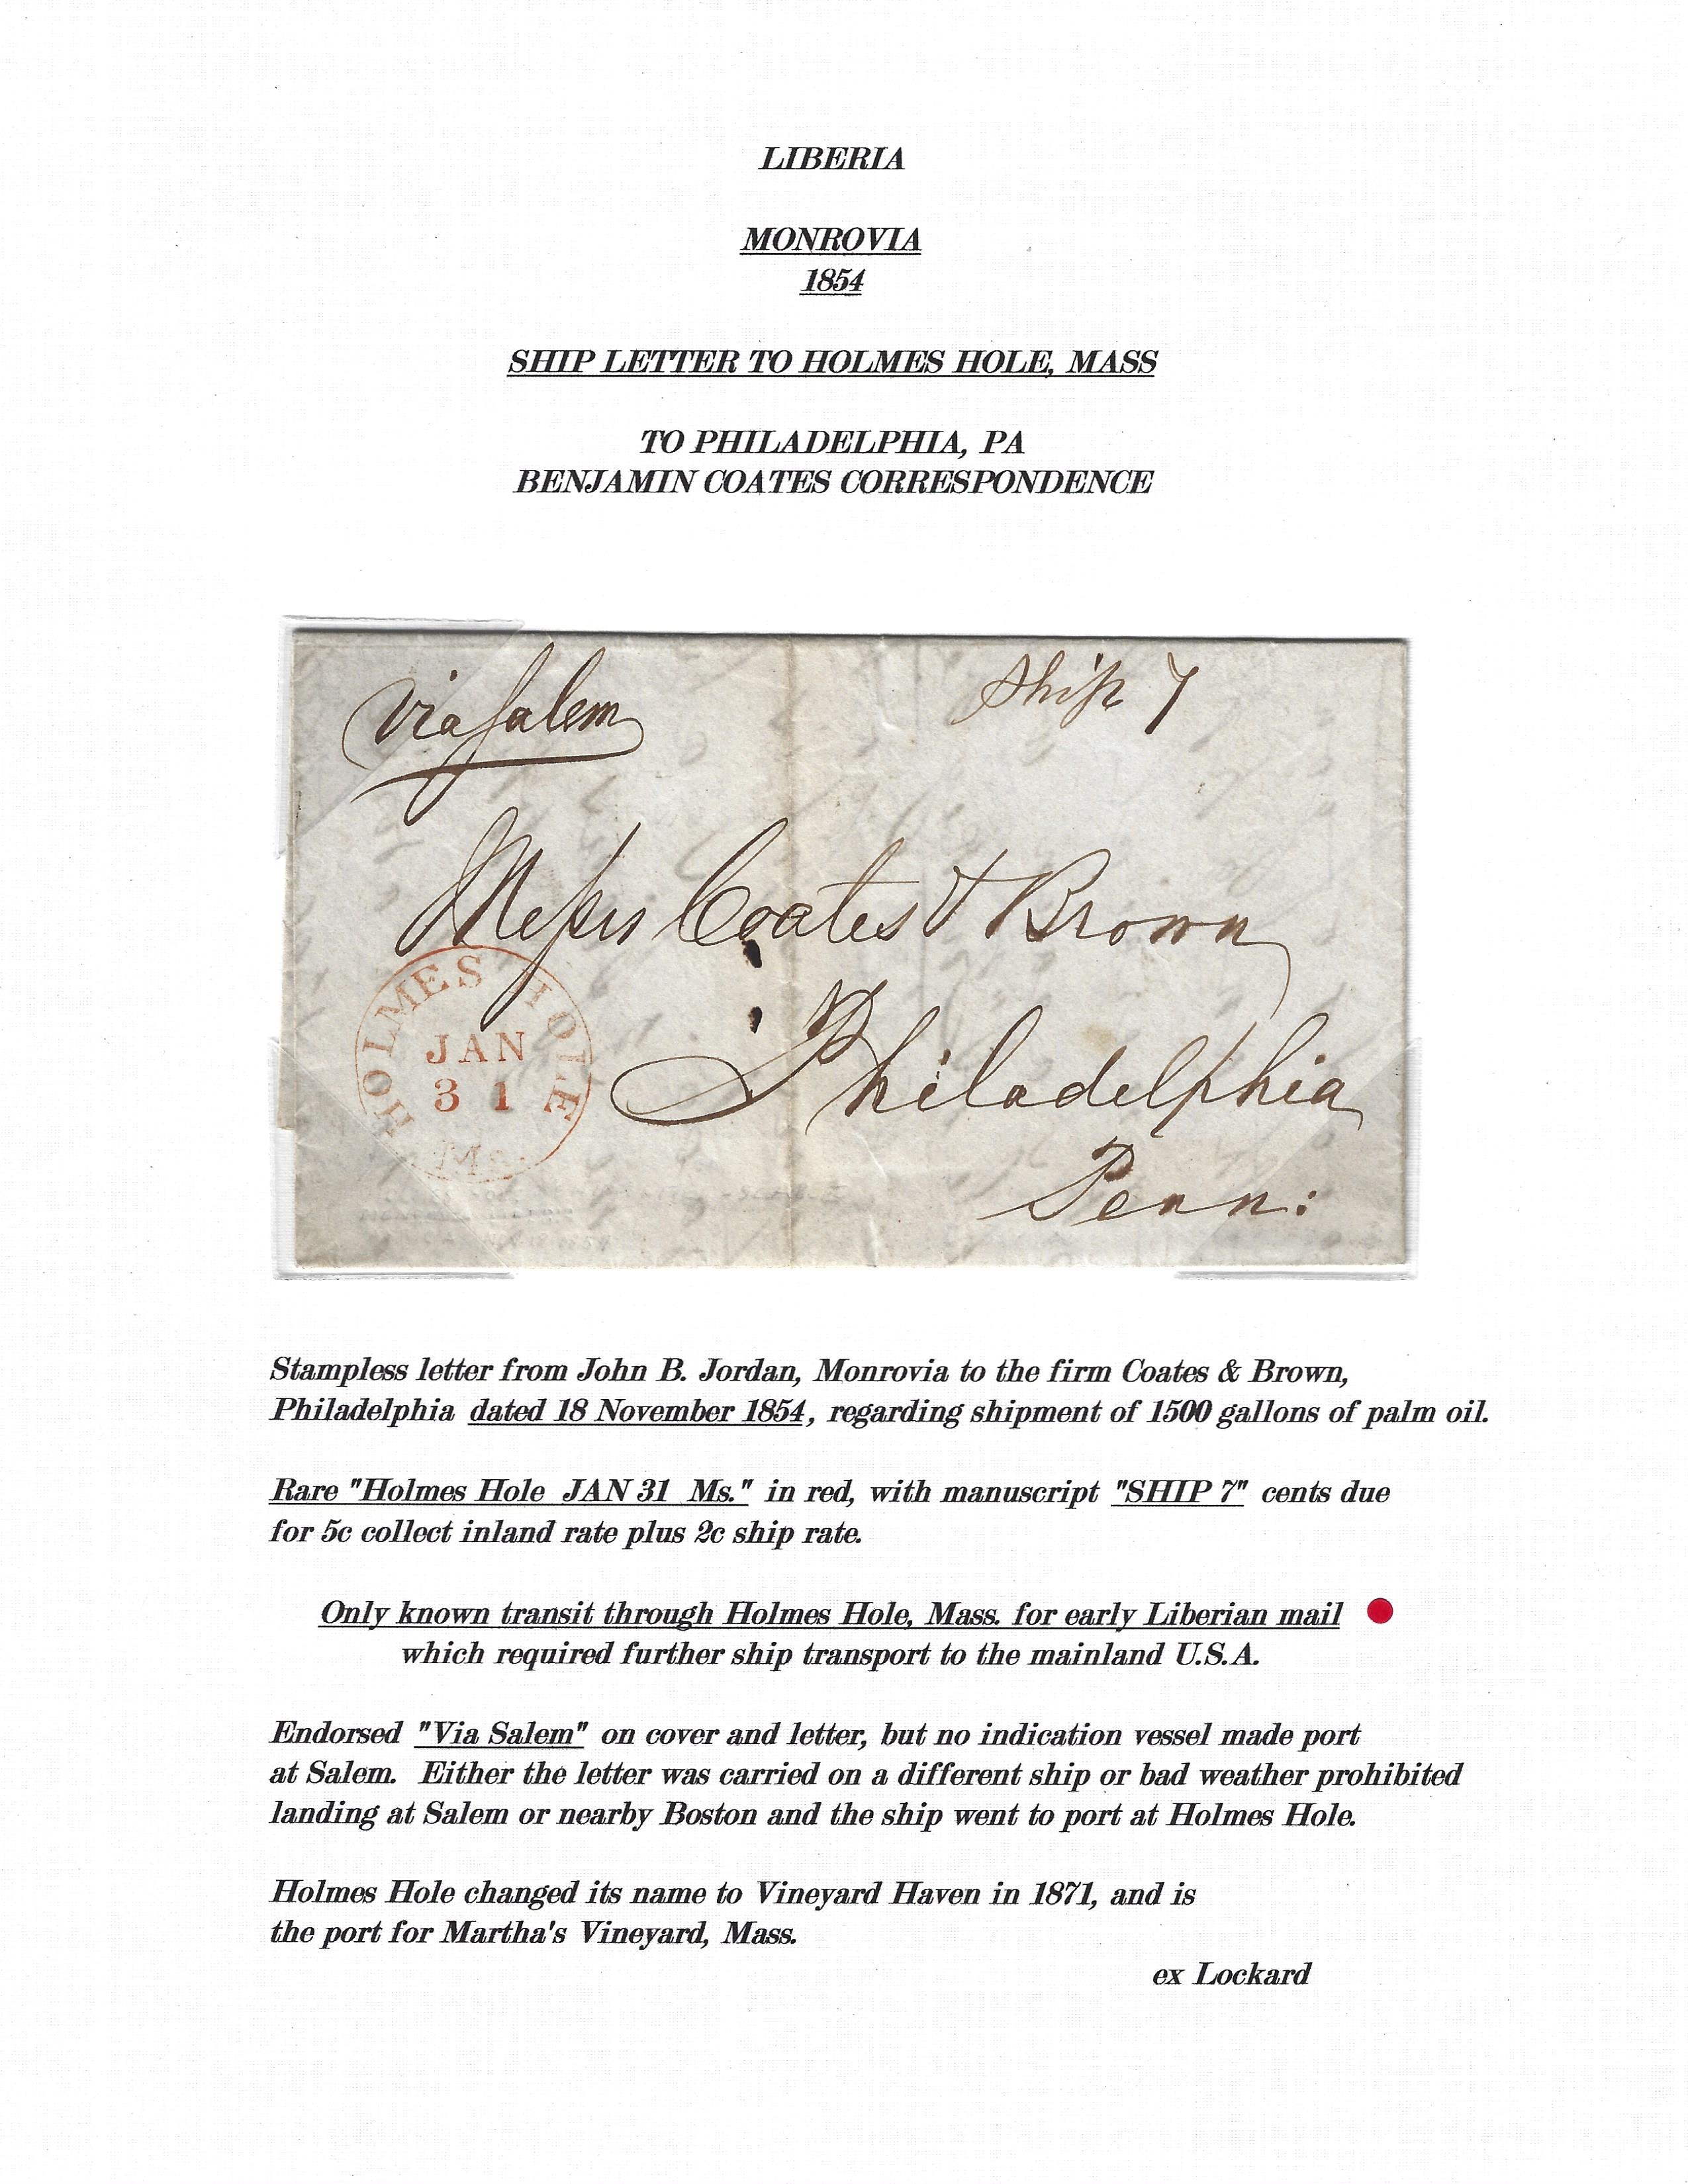 LIBERIA
MONROVIA
1854
SHIP LETTER TO HOLMES HOLE, MASS
TO PHILADELPHIA, PA
BENJAMIN COATES CORRESPONDENCE
Via Salem
Ship 7
Messrs Coates & Brown
HOLMES HOLE
JAN
31
Ms.
Philadelphia
Penn:
Stampless letter from John B. Jordan, Monrovia to the firm Coates & Brown,
Philadelphia dated 18 November 1854, regarding shipment of 1500 gallons of palm oil.
Rare "Holmes Hole JAN 31 Ms." in red, with manuscript "SHIP 7" cents due
for 5c collect inland rate plus 2c ship rate.
Only known transit through Holmes Hole, Mass. for early Liberian mail
which required further ship transport to the mainland U.S.A.
Endorsed "Via Salem" on cover and letter, but no indication vessel made port
at Salem. Either the letter was carried on a different ship or bad weather prohibited
landing at Salem or nearby Boston and the ship went to port at Holmes Hole.
Holmes Hole changed its name to Vineyard Haven in 1871, and is
the port for Martha's Vineyard, Mass.
ex Lockard